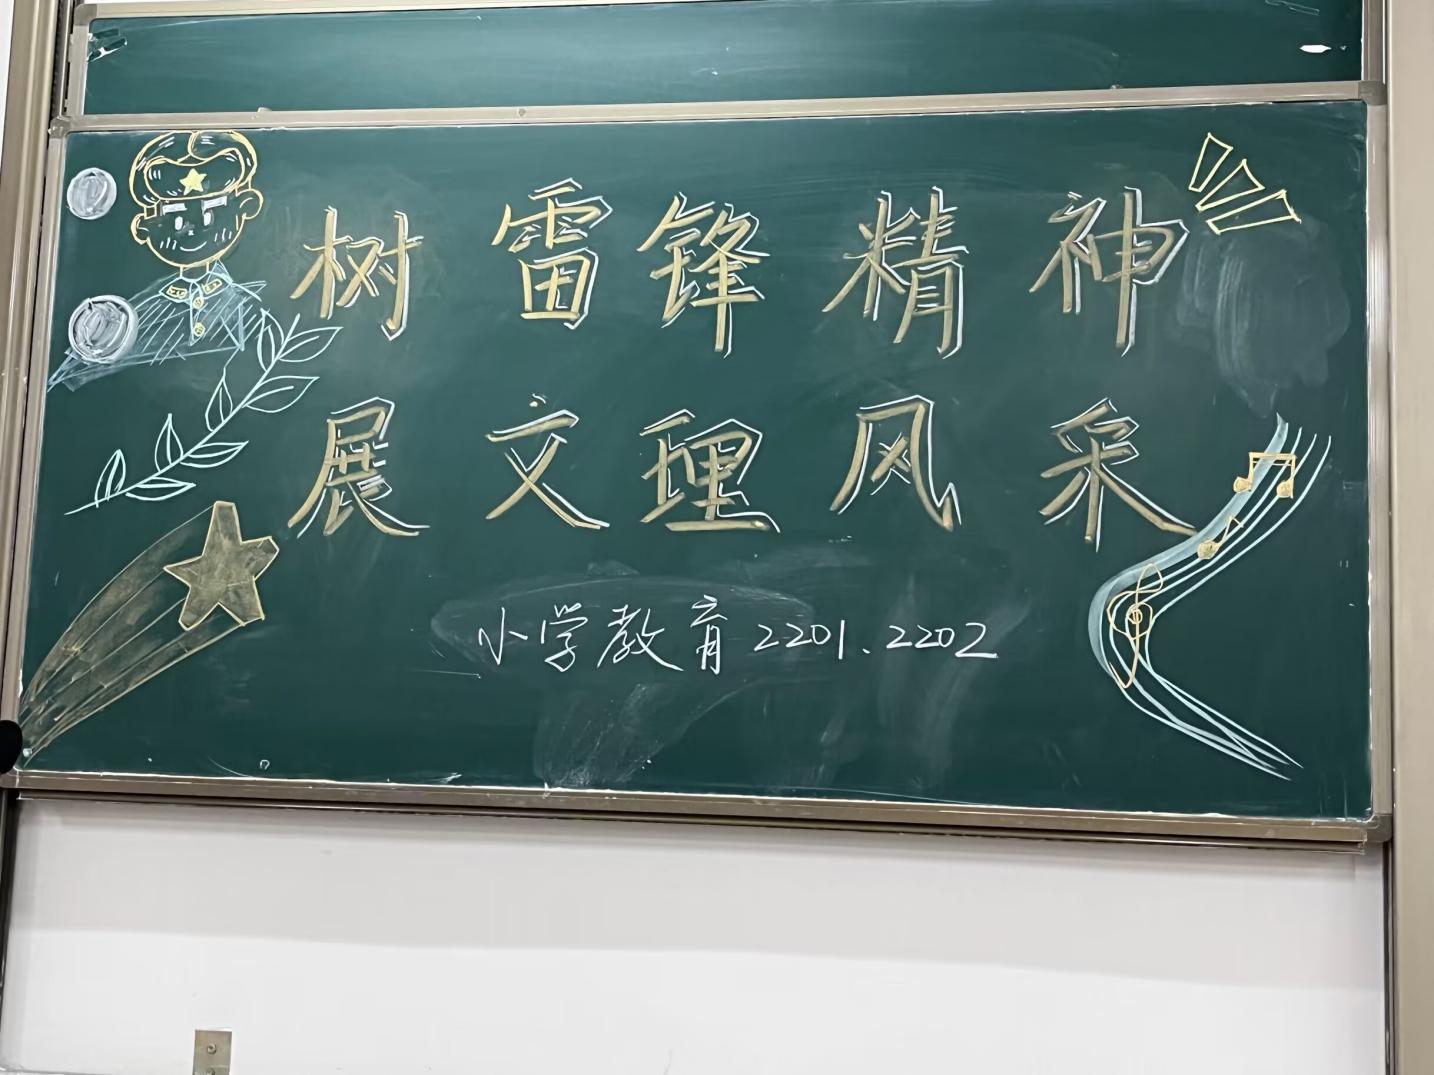 树雷锋精神
展文理风采
小学教育2201.2202